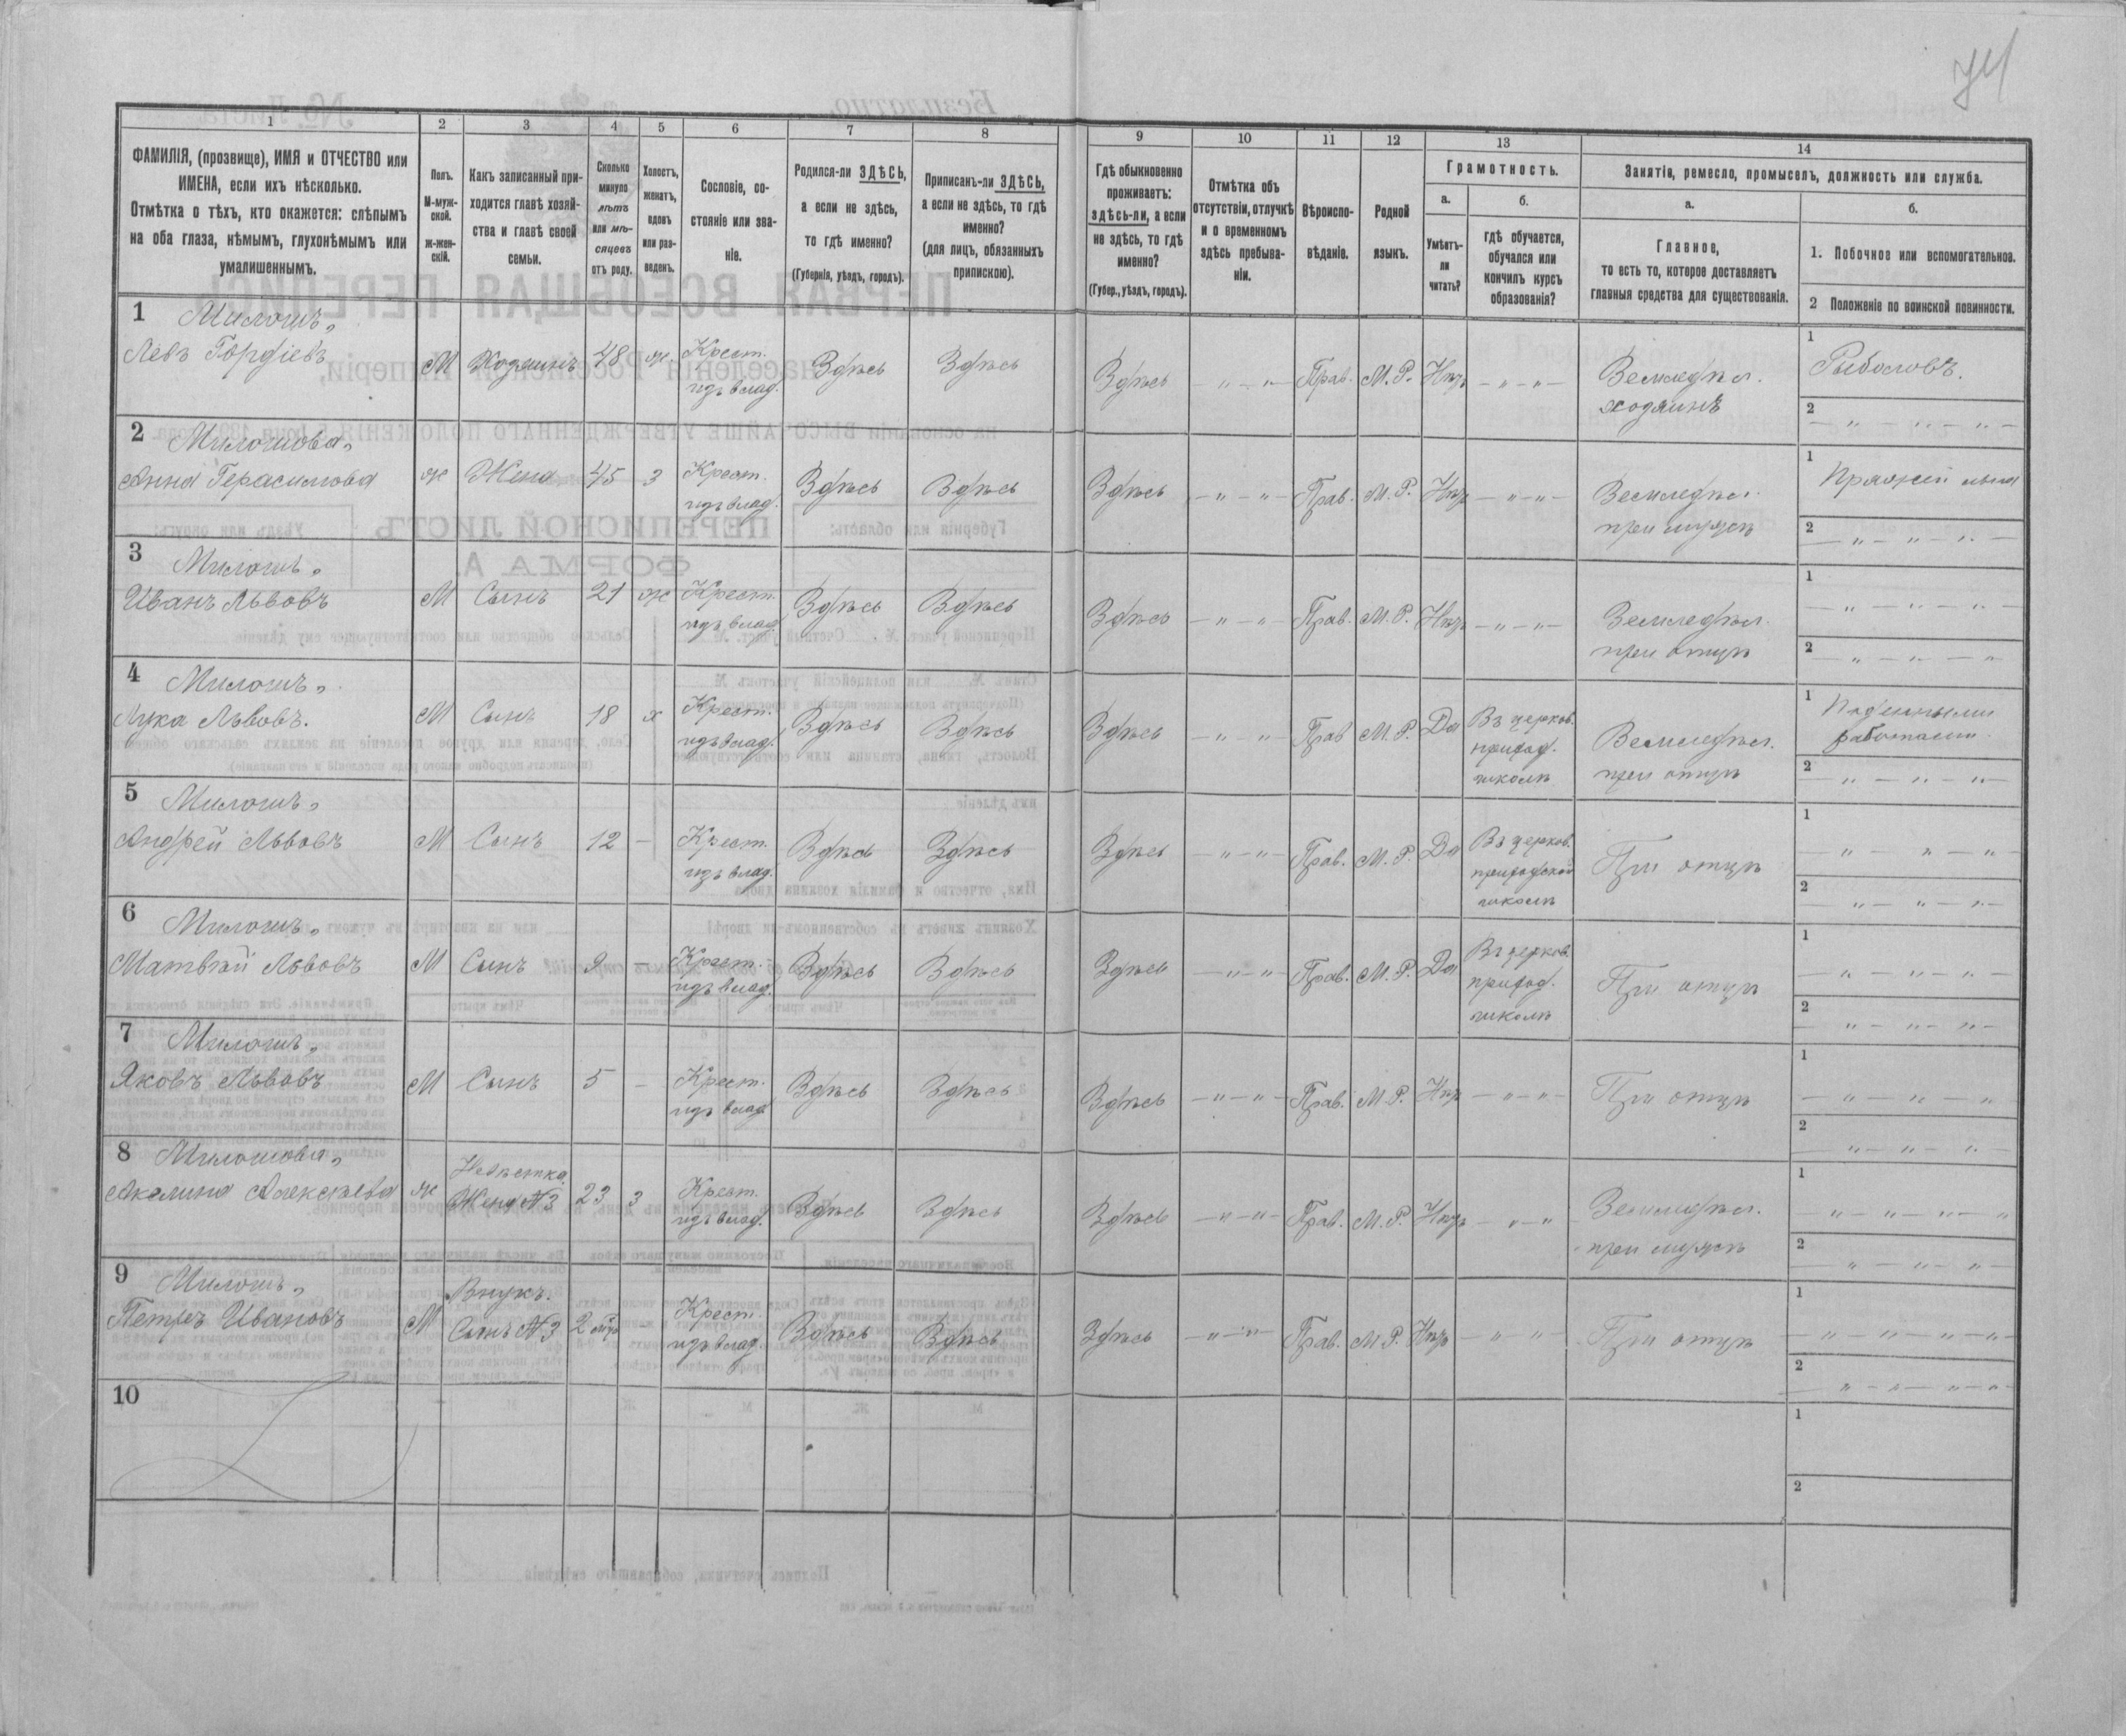 74
1 2 3 4 5 6 7 8 9 10 11 12 13 14
ФАМИЛІЯ, (прозвище), ИМЯ и ОТЧЕСТВО или
ИМЕНА, если ихъ нѣсколько.
Отмѣтка о тѣхъ, кто окажется: слѣпымъ
на оба глаза, нѣмымъ, глухонѣмымъ или
умалишеннымъ.
Полъ.
М-муж-
ской.
ж-жен-
скій.
Какъ записанный при-
ходится главѣ хозяй-
ства и главѣ своей
семьи.
Сколько
минуло
лѣтъ
или мѣ-
сяцевъ
отъ роду.
Холостъ,
женатъ,
вдовъ
или раз-
веденъ.
Сословіе, со-
стояніе или зва-
ніе.
Родился-ли ЗДѢСЬ,
а если не здѣсь,
то гдѣ именно?
(Губернія, уѣздъ, городъ).
Приписанъ-ли ЗДѢСЬ,
а если не здѣсь, то гдѣ
именно?
(для лицъ, обязанныхъ
припискою).
Гдѣ обыкновенно
проживаетъ:
здѣсь-ли, а если
не здѣсь, то гдѣ
именно?
(Губер., уѣздъ, городъ).
Отмѣтка объ
отсутствіи, отлучкѣ
и о временномъ
здѣсь пребыва-
ніи.
Вѣроиспо-
вѣданіе.
Родной
языкъ.
Грамотность.
а.
Умѣетъ-
ли
читать?
б.
гдѣ обучается,
обучался или
кончилъ курсъ
образованія?
Занятіе, ремесло, промыселъ, должность или служба.
а.
Главное,
то есть то, которое доставляетъ
главныя средства для существованія.
б.
1. Побочное или вспомогательное.
2 Положеніе по воинской повинности.
1 Милошъ,
Левъ Гордіевъ М Хозяинъ 48 ж. Крест. Здѣсь Здѣсь Здѣсь — „ — „ — Прав. М. Р. Нѣтъ — „ — „ — Земледѣл. 1 Рыболовъ.
изъ влад. хозяинъ 2 — „ — „ — „ —
2 Милошова,
Анна Герасимова ж Жена 45 з Крест. Здѣсь Здѣсь Здѣсь — „ — „ — Прав. М. Р. Нѣтъ — „ — „ — Земледѣл. 1 Пряжей льна
изъ влад. при мужѣ 2 — „ — „ — „ —
3 Милошъ,
Иванъ Львовъ М Сынъ 21 ж Крест. Здѣсь Здѣсь Здѣсь — „ — „ — Прав. М. Р. Нѣтъ — „ — „ — Земледѣл. 1 — „ — „ — „ —
изъ влад. при отцѣ 2 — „ — „ — „
4 Милошъ,
Лука Львовъ. М Сынъ 18 х Крест. Здѣсь Здѣсь Здѣсь — „ — „ — Прав М. Р. Да Въ церков. Земледѣл. 1 Поденными
изъ влад. приход. при отцѣ работами.
школѣ 2 — „ — „ — „ —
5 Милошъ,
Андрей Львовъ М Сынъ 12 — Крест. Здѣсь Здѣсь Здѣсь — „ — „ — Прав. М. Р. Да Въ церков. При отцѣ 1 — „ „ — „
изъ влад. приходской
школѣ 2 — „ — „ — „ —
6 Милошъ,
Матвѣй Львовъ М Сынъ 9 — Крест. Здѣсь Здѣсь Здѣсь — „ — „ — Прав. М. Р. Да Въ церков. При отцѣ 1 — „ — „ — „ —
изъ влад. приход.
школѣ 2 — „ — „ — „ —
7 Милошъ,
Яковъ Львовъ М Сынъ 5 — Крест. Здѣсь Здѣсь Здѣсь — „ — „ — Прав. М. Р. Нѣтъ — „ — „ — При отцѣ 1 — „ — „ — „
изъ влад. 2 „ — „ — „ —
8 Милошова, Невѣстка,
Акелина Алексѣева ж Жена № 3 23 з Крест. Здѣсь Здѣсь Здѣсь — „ — „ — Прав. М. Р. Нѣтъ — „ — „ Земледѣл. 1 — „ — „ — „ — „
изъ влад. при мужѣ 2 — „ — „ — „ —
9 Милошъ, Внукъ.
Петръ Ивановъ М Сынъ № 3 2 Крест. Здѣсь Здѣсь Здѣсь — „ — „ — Прав. М Р. Нѣтъ — „ — „ — При отцѣ 1 „ — „ — „ — „ —
изъ влад. 2 „ — „ — „ — „
10 1
2